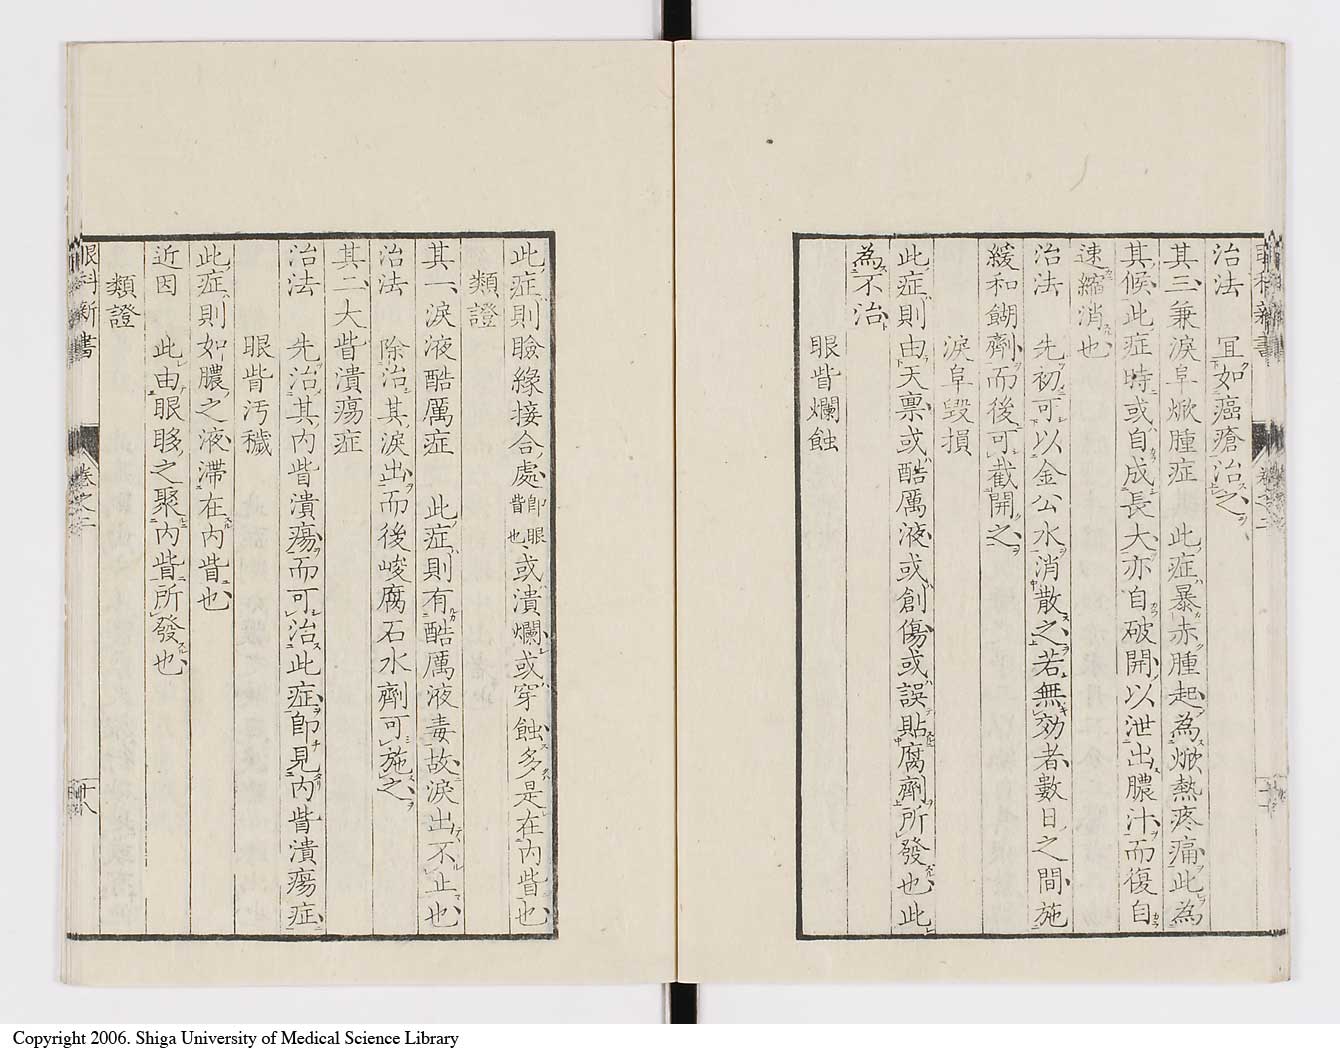 治法　宜如癌瘡治之
其三、兼淚阜焮腫症　此症暴赤腫起為焮熱疼痛此為
其候此症時或自成長大亦自破開以泄出膿汁而復自
速縮消也
治法　先初可以金公水消散之若無効者數日之間施
緩和餬劑而後可截開之
淚阜毀損
此症則由天稟或酷厲液或創傷或誤貼腐劑所發也此
為不治
眼眥爛蝕
此症則瞼緣接合處即眼眥也、或潰爛或穿蝕多是在內眥也
類證
其一、淚液酷厲症　此症則有酷厲液毒故淚出不止也
治法　除治其淚出而後峻腐石水劑可施之
其二、大眥潰瘍症
治法　先治其內眥潰瘍而可治此症即見內眥潰瘍症
眼眥汚穢
此症則如膿之液滯在內眥也
近因　此由眼眵之聚內眥所發也
類證
眼科新書　卷之二　十八
Copyright 2006. Shiga University of Medical Science Library